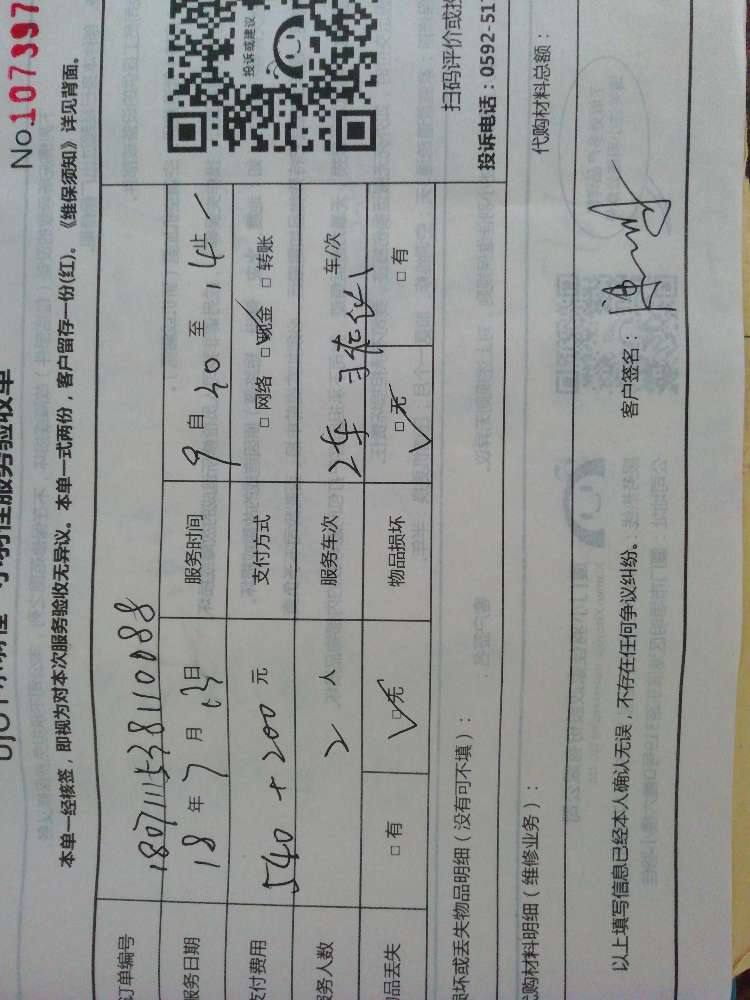 No.107397
服务验收单
本单一经核签，即视为对本次服务验收无异议。本单一式两份，客户留存一份(红)。《维保须知》详见背面。
订单编号 1807111538110088
服务日期 18 年 7 月 13 日 服务时间 9 自 30 至 14 止
支付费用 540 + 200 元 支付方式 □网络 □现金 □转账
服务人数 2 人 服务车次 2车 车/次
物品丢失 □有 □无 物品损坏 □无 □有
损坏或丢失物品明细（没有可不填）：
代购材料明细（维修业务）： 代购材料总额：
以上填写信息已经本人确认无误，不存在任何争议纠纷。 客户签名：
投诉或建议
扫码评价或投
投诉电话：0592-517